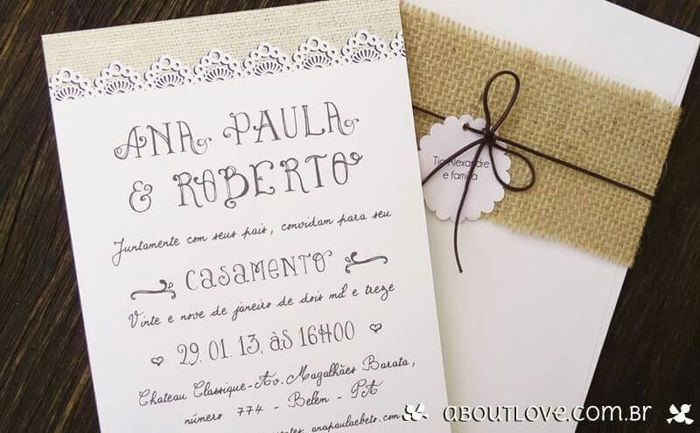 ANA PAULA
& ROBERTO
Juntamente com seus pais, convidam para seu
CASAMENTO
Vinte e nove de janeiro de dois mil e treze
29. 01. 13. às 16H00
Chateau Classique-Av. Magalhães Barata,
número 774 - Belém - PA
anapaulaebeto.com
Tio Alexandre
e família
ABOUTLOVE.COM.BR